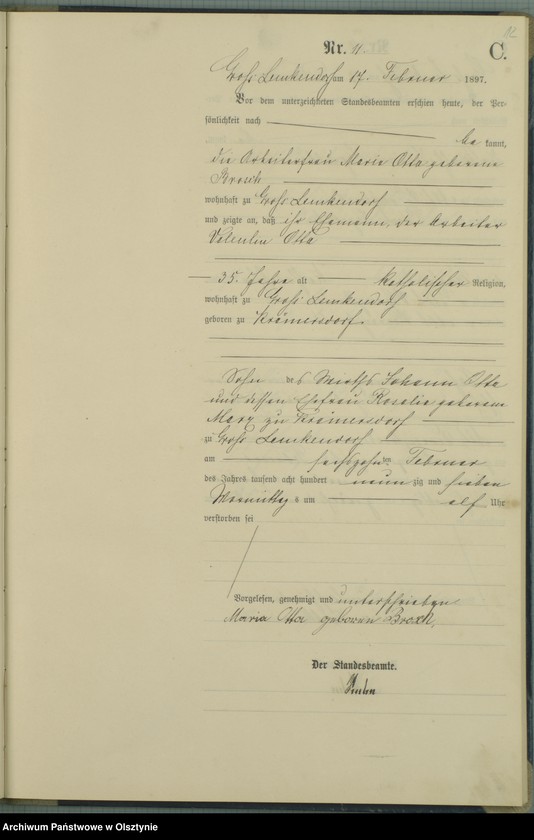 Nr. 11.
C.
Groß Lemkendorf am 17. Februar 1897.
Vor dem unterzeichneten Standesbeamten erschien heute, der Per-
sönlichkeit nach
be kannt,
die Arbeiterfrau Maria Otta geborene
wohnhaft zu Groß Lemkendorf
und zeigte an, daß ihr Ehemann, der Arbeiter
Valentin Otta
35. Jahre alt katholischer Religion,
wohnhaft zu Groß Lemkendorf
geboren zu Krämersdorf
Sohn des Wirths Johann Otta
und dessen Ehefrau Rosalie geborene
Marx zu Krämersdorf
zu Groß Lemkendorf
am sechszehnten Februar
des Jahres tausend acht hundert neun zig und sieben
Vormittags um elf Uhr
verstorben sei
Vorgelesen, genehmigt und unterschrieben
Maria Otta geboren
Der Standesbeamte.
Archiwum Państwowe w Olsztynie